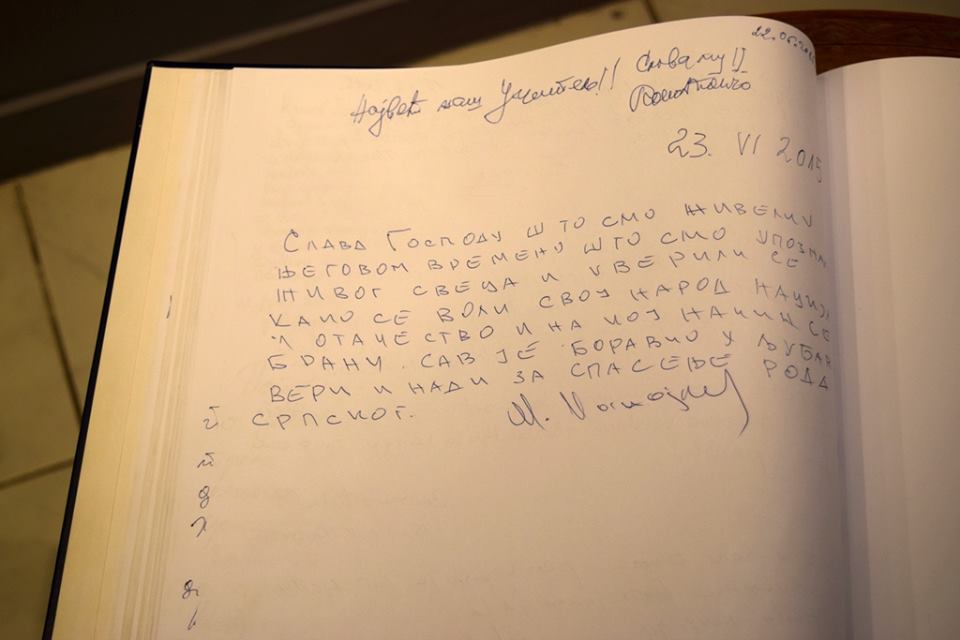 22.06.
Највећи наш Учитељу!! Слава му!!
23. VI 2015
Слава Господу што смо живели у
његовом времену што смо упозна
живог свеца и уверили се
како се воли свој народ нациј
и отачество и на кој начин се
брани. Сав је боравио у љубав
вери и нади за спасење рода
српског.